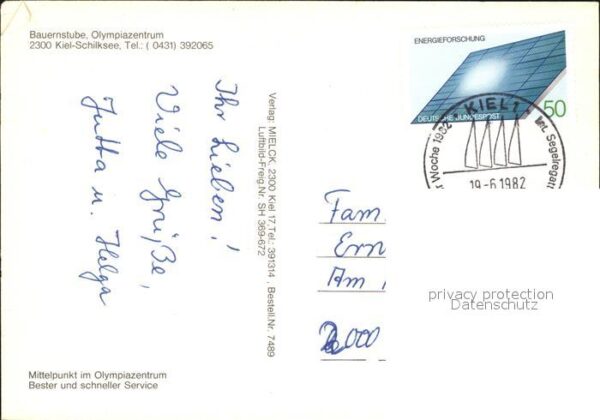 Bauernstube, Olympiazentrum
2300 Kiel-Schilksee, Tel.: (0431) 392065
Ihr Lieben!
Viele Grüße,
Jutta u. Helga
Verlag: MIELCK, 2300 Kiel 17, Tel.: 391314, Bestell.Nr. 7489
Luftbild-Freig.Nr. SH 369-672
ENERGIEFORSCHUNG
DEUTSCHE BUNDESPOST
50
KIEL 1
Woche 1982
Int. Segelregatt
19-6.1982
Fam.
Ern
Am
2000
privacy protection
Datenschutz
Mittelpunkt im Olympiazentrum
Bester und schneller Service